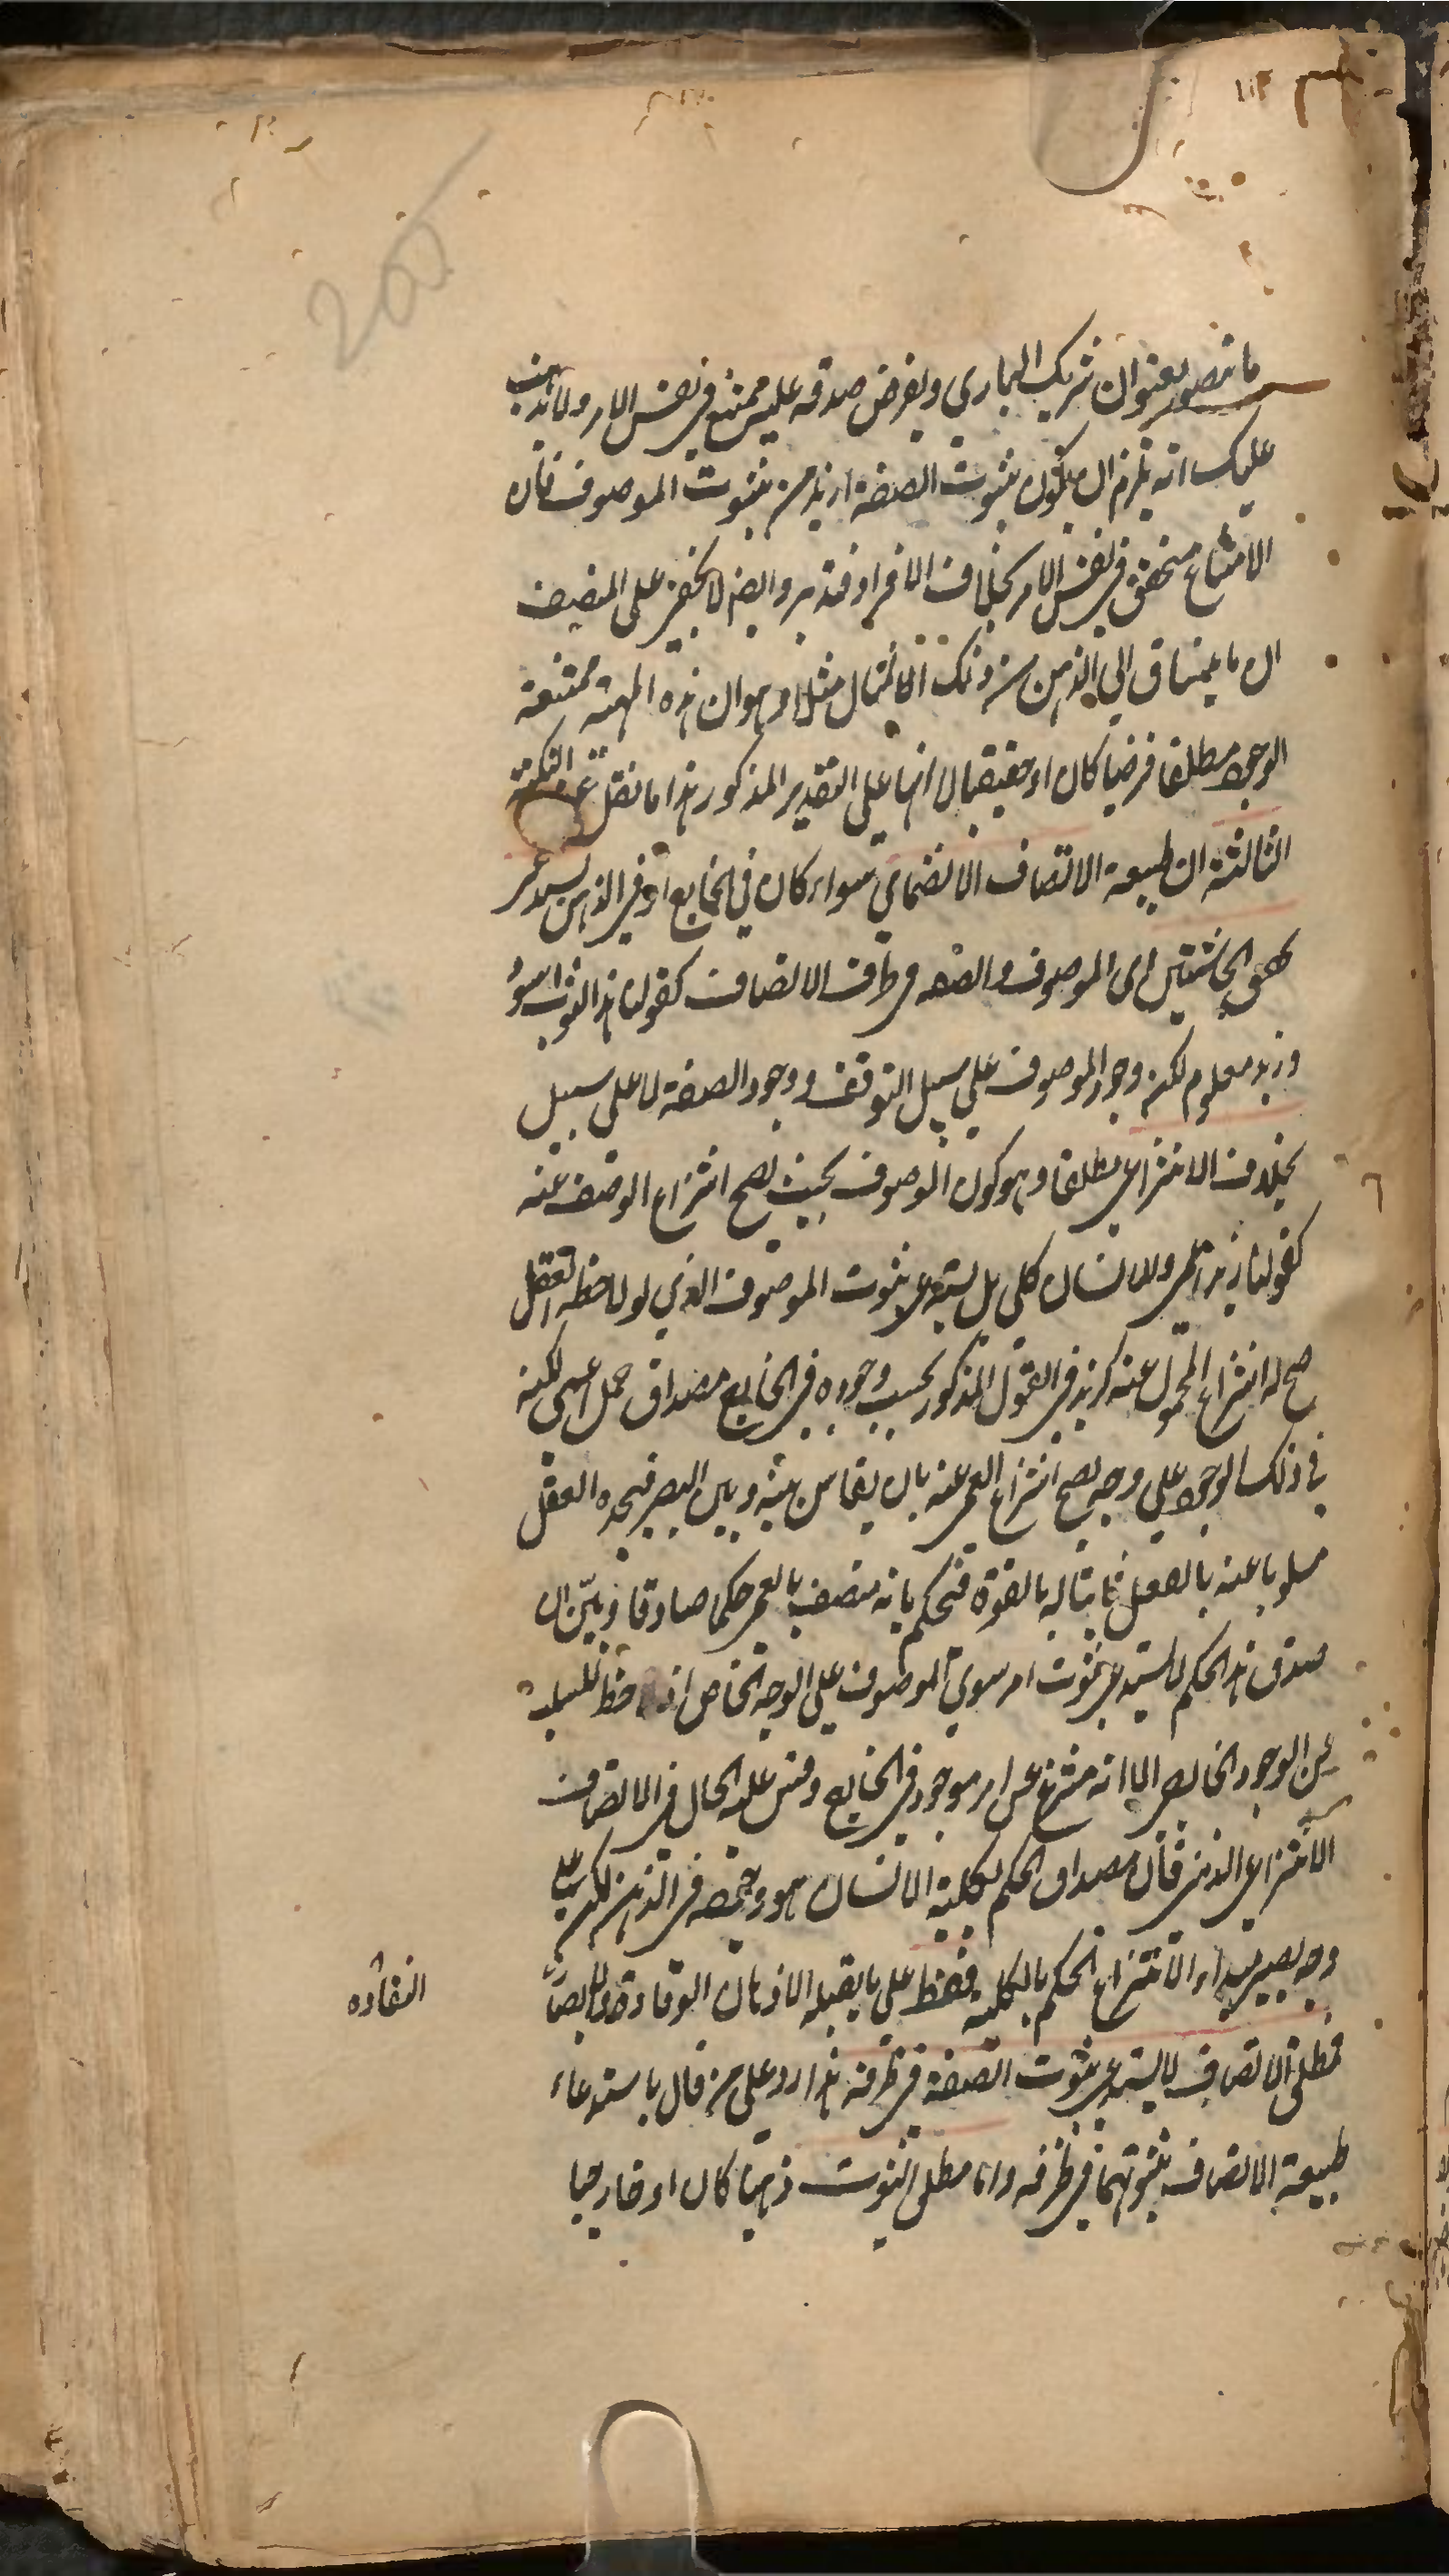 ما يتصور بعنوان شريك الباري ويفرض صدقه عليه ممتنع في نفس الامر ولا يذهب
عليك انه يلزم ان يكون ثبوت الصفة ازيد من ثبوت الموصوف فان
الامتناع متحقق في نفس الامر بخلاف الافراد فتدبر وايضا لا يخفى على المنصف
ان ما ينساق الى الذهن من ذلك الامثال مثلا وهو ان هذه المهية ممتنعة
الوجود مطلقا فرضيا كان او حقيقيا لا انها على التقدير المذكور هذا ما نقل عنه النكتة
الثالثة ان طبيعة الاتصاف الانضمامي سواء كان في الخارج او في الذهن يستدعى
تحقق الحاشيتين اى الموصوف والصفة في ظرف الاتصاف كقولنا هذا الثوب اسود
وزيد معلوم لكن وجود الموصوف على سبيل التوقف ووجود الصفة لا على سبيل
بخلاف الانتزاعي مطلقا وهو كون الموصوف بحيث يصح انتزاع الوصف عنه
كقولنا زيد اعمى والانسان كلي بل يستدعي ثبوت الموصوف الذي لو لاحظه العقل
صح له انتزاع المحمول عنه كزيد في القول المذكور بحسب وجوده في الخارج مصداق حمل اعمى لكنه
في ذلك الوجود على وجه يصح انتزاع العمى عنه بان يقاس بينه وبين البصر فيجده العقل
مسلوبا عنه بالفعل ثابتا له بالقوة فيحكم بانه متصف بالعمى حكما صادقا وبين ان
صدق هذا الحكم لا يستدعي ثبوت امر سوى الموصوف على الوجه الخاص اذ لا حظ للسلب
عن الوجود الخارجي الا انه منتزع عن امر موجود في الخارج وقس عليه الحال في الاتصاف
الانتزاعي الذهني فان مصداق الحكم بكلية الانسان هو وجوده في الذهن لكن على
وجه يصير مبدءا لانتزاع الحكم بالكلية فقط على ما يقبله الاذهان الوقادة والابصار
النقادة
فمطلق الاتصاف لا يستدعي ثبوت الصفة في ظرفه هذا رد على من قال باستدعاء
طبيعة الاتصاف ثبوتهما في ظرفه واما مطلق الثبوت ذهنيا كان او خارجيا